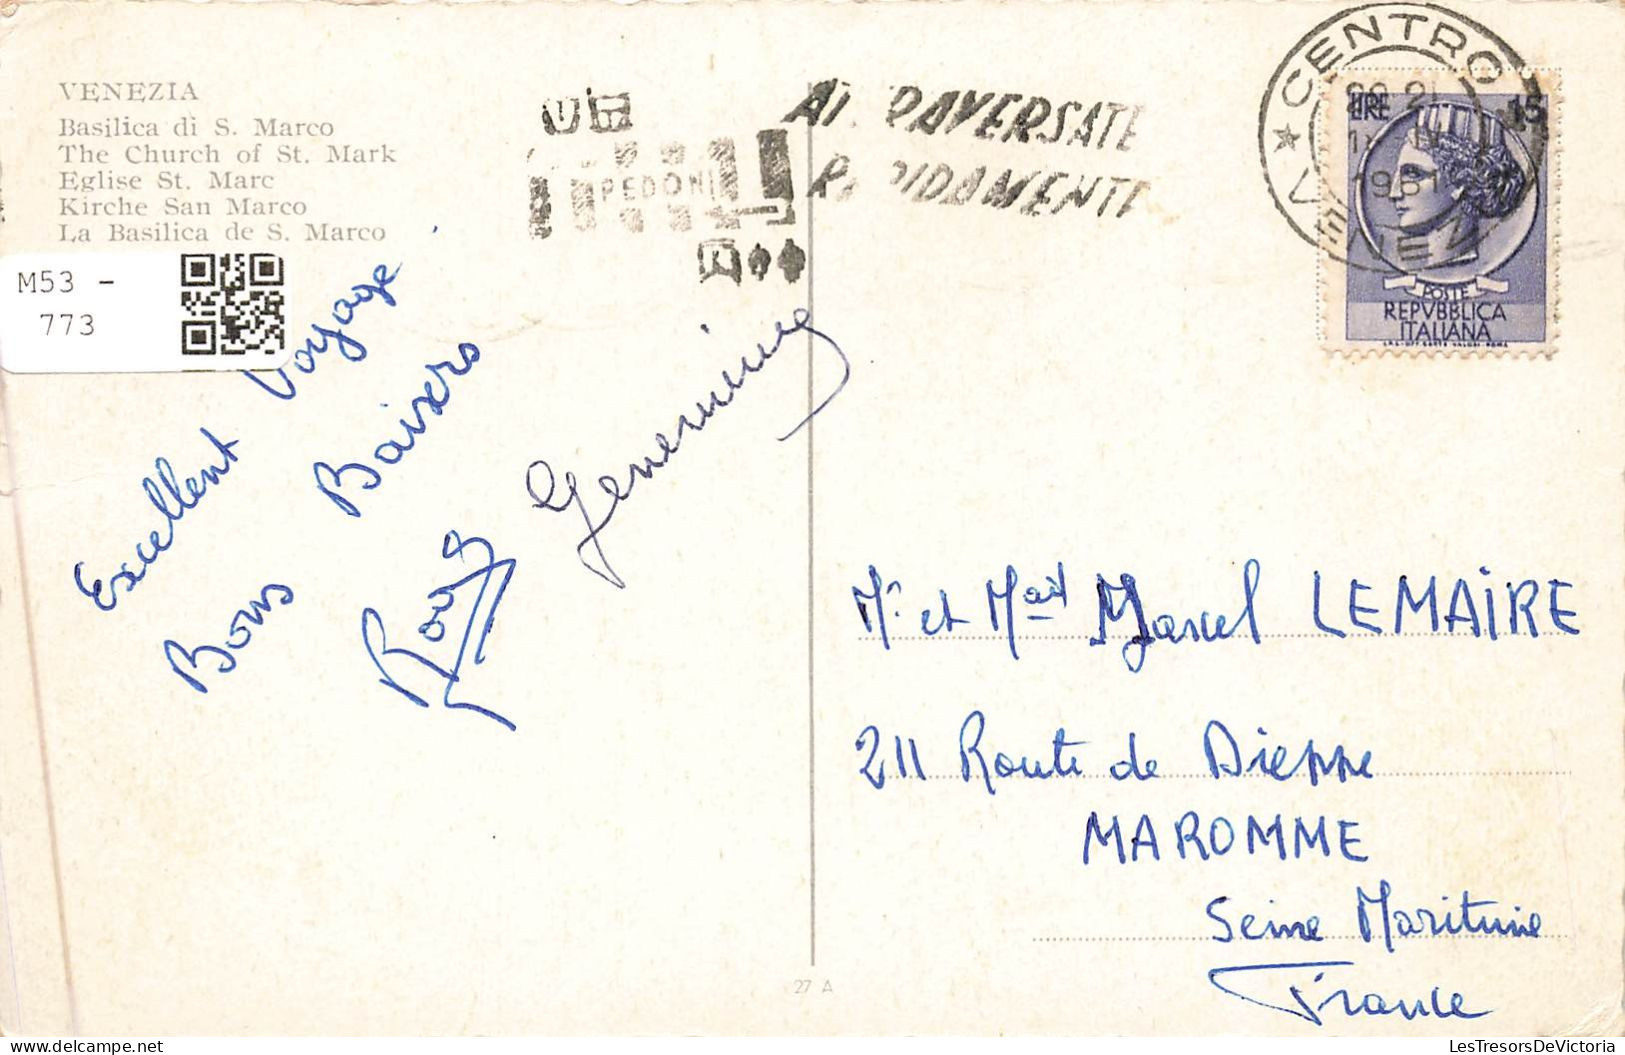 VENEZIA
Basilica di S. Marco
The Church of St. Mark
Eglise St. Marc
Kirche San Marco
La Basilica de S. Marco
M53 -
773
PEDONI
RAPIDAMENTE
CENTRO
VENEZ
1961
LIRE 15
POSTE
REPVBBLICA
ITALIANA
Excellent Voyage
Bons Baisers
Mr et Mad Marcel LEMAIRE
211 Route de Dieppe
MAROMME
Seine Maritime
France
27 A
LesTresorsDeVictoria